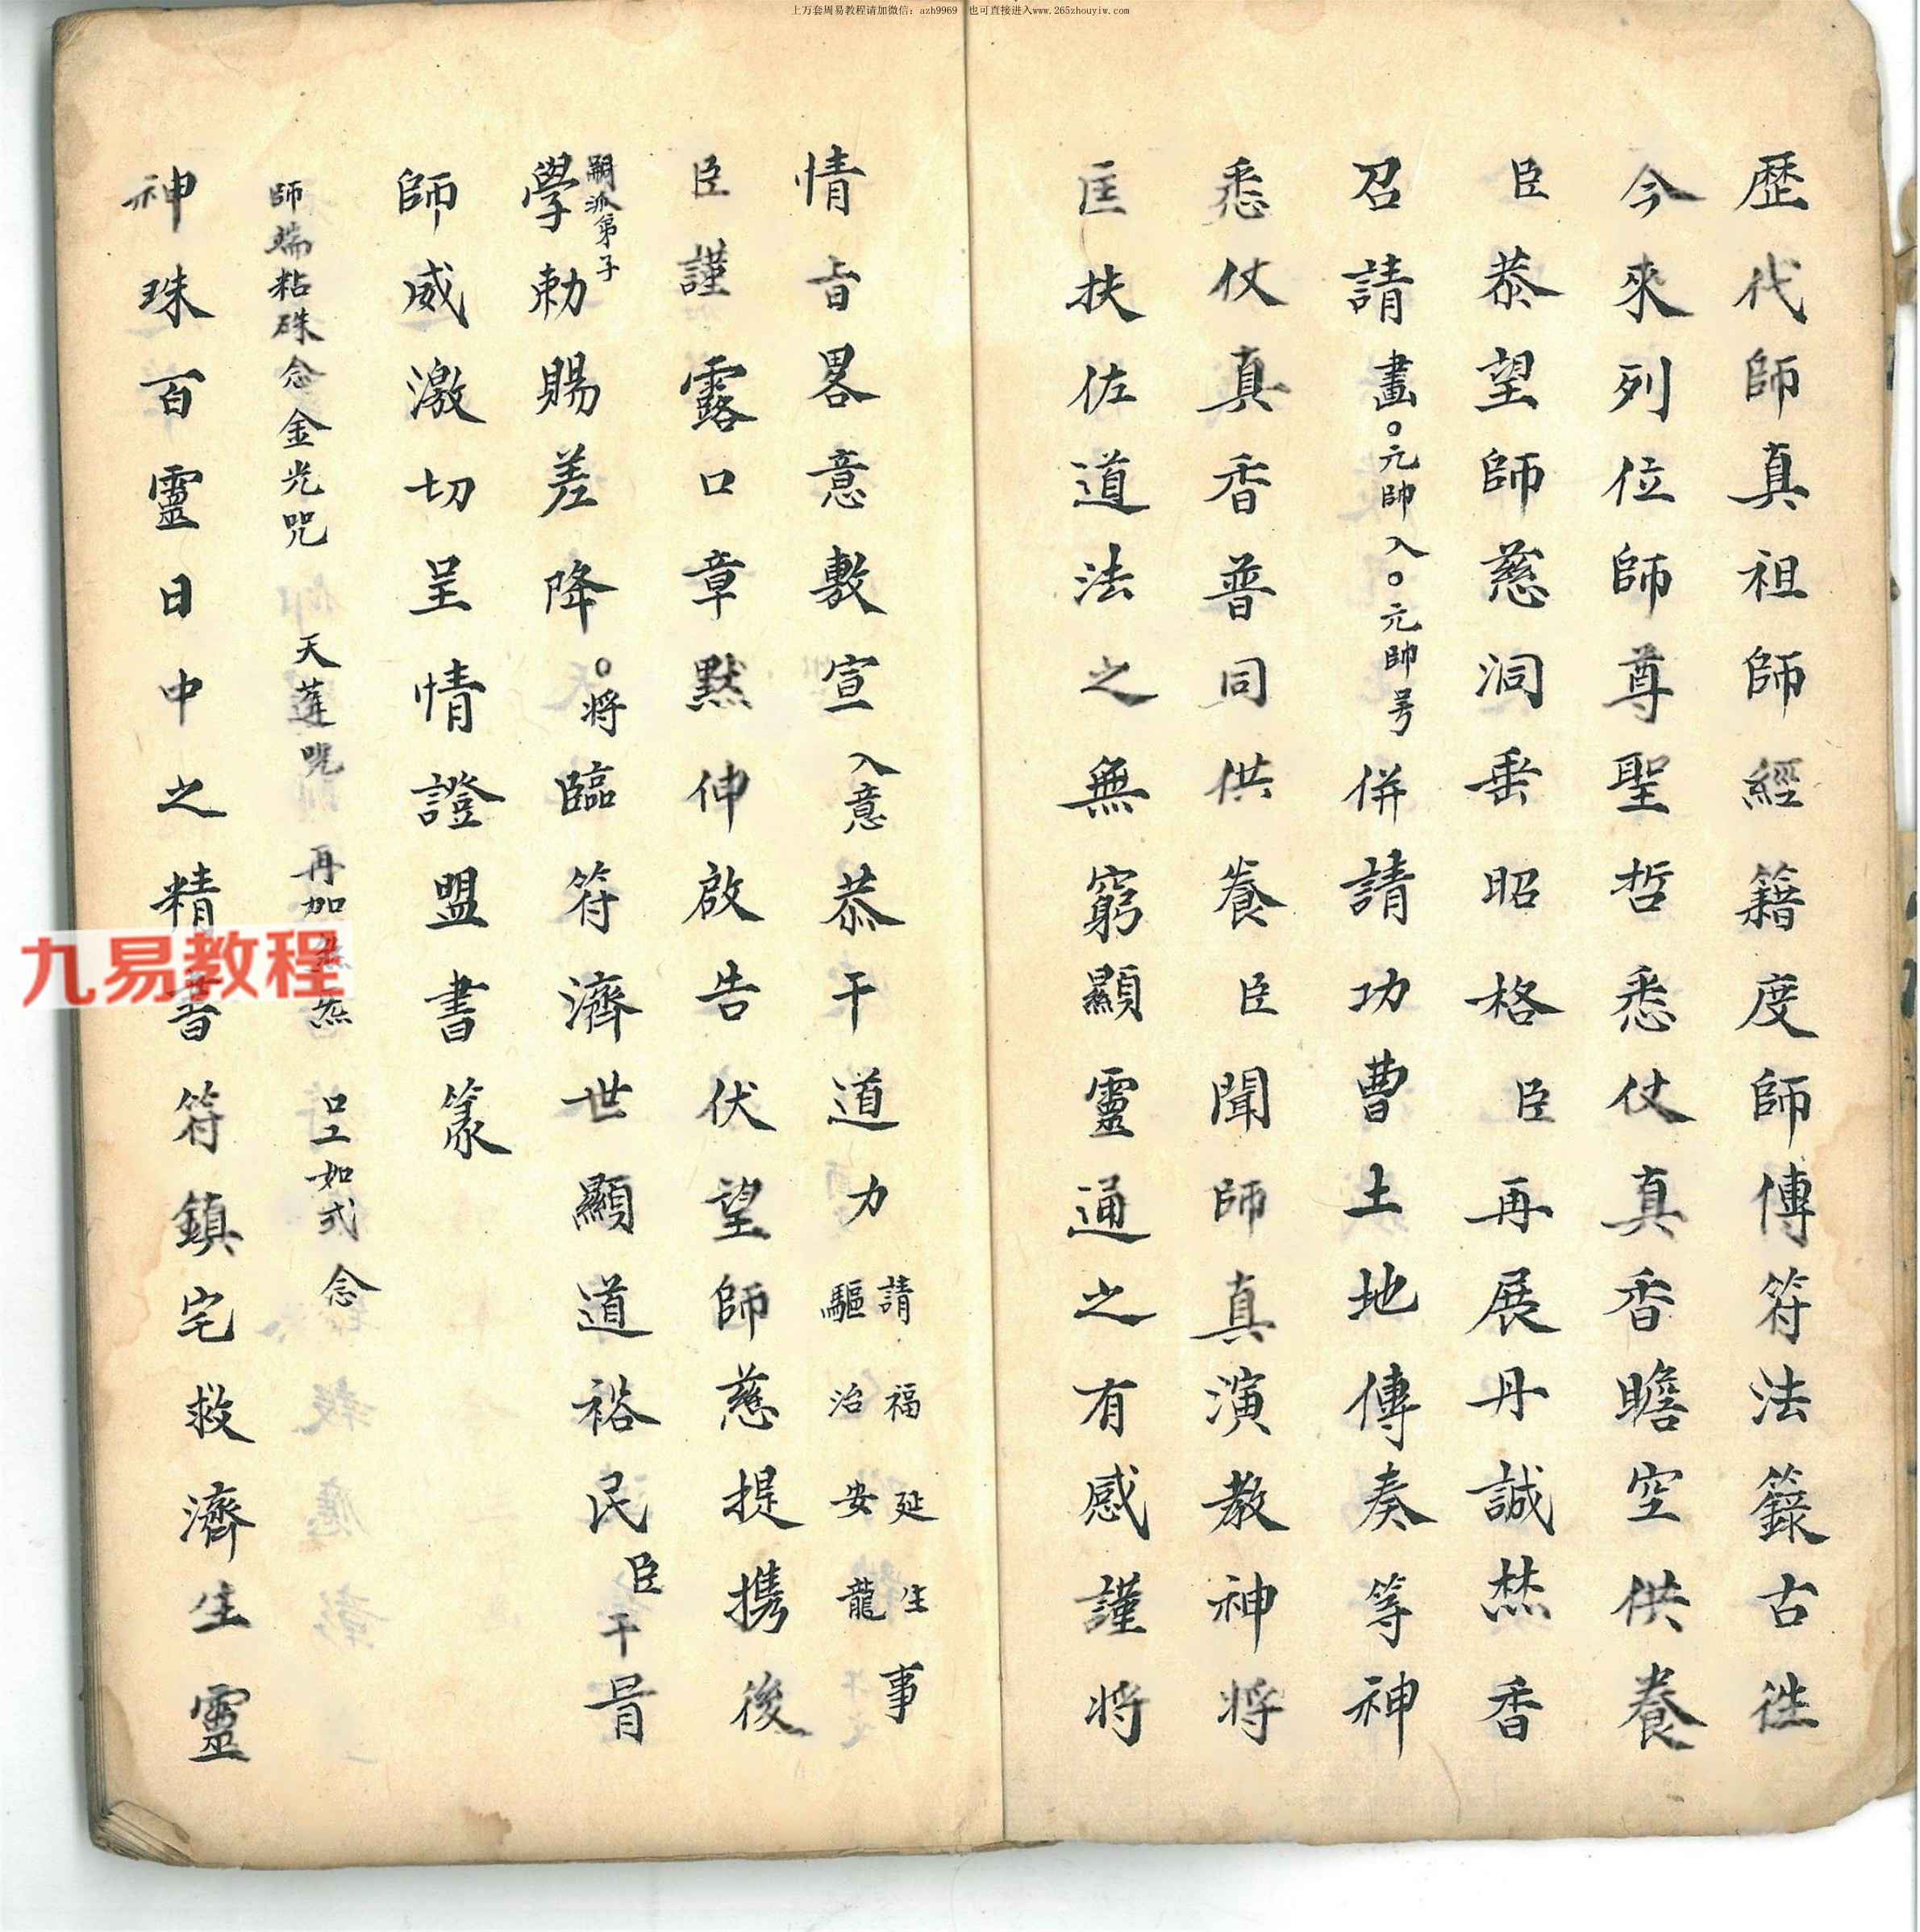 上万套周易教程请加微信：azh9969　也可直接进入www.265zhouyiw.com
歷代師真祖師經籍度師傳符法籙古徃
今來列位師尊聖哲悉仗真香瞻空供養
臣恭望師慈洞垂昭格臣再展丹誠焚香
召請畫○元帥入○元帥号併請功曹土地傳奏等神
悉仗真香普同供養臣聞師真演教神將
匡扶佐道法之無窮顯靈通之有感謹將
情旨畧意敷宣入意恭干道力請福延生驅治安龍事
臣謹露口章默伸啟告伏望師慈提携後
學嗣派弟子勅賜差降○將臨符濟世顯道裕民臣干冐
師威激切呈情證盟書篆
師端粘硃念金光咒　天蓬咒　再加　口工如式念
神珠百靈日中之精書符鎮宅救濟生靈
九易教程